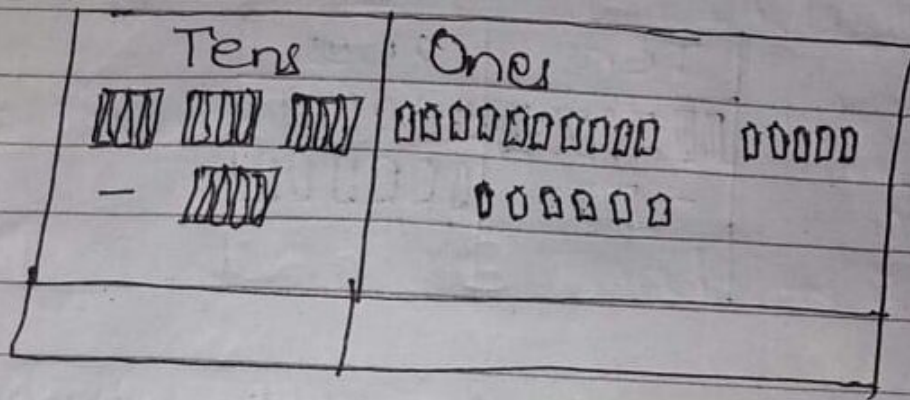 Tens Ones
−